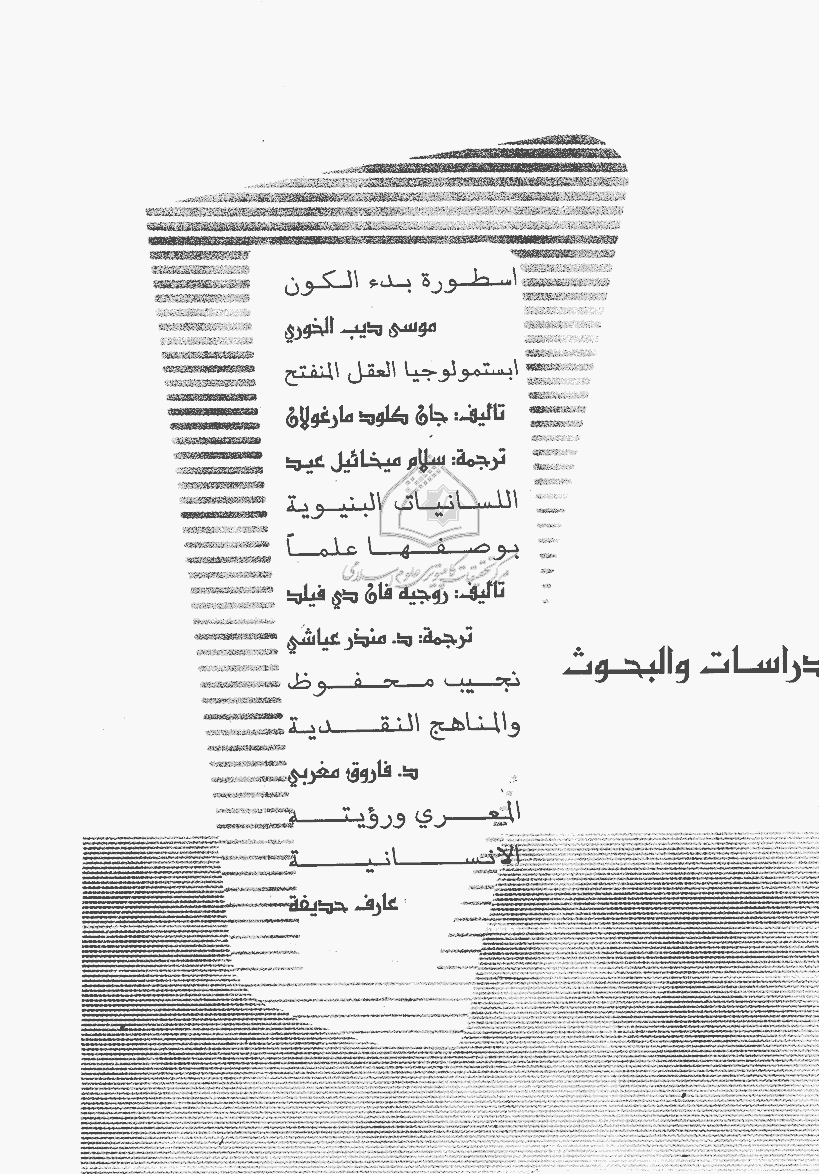 اسطورة بدء الكون
موسى ديب الخوري
ابستمولوجيا العقل المنفتح
تأليف: جان كلود مارغولان
ترجمة: سلام ميخائيل عيد
اللسانيات البنيوية
بوصفها علماً
مركز تحقيقات كامپيوتری علوم اسلامی
تأليف: روجيه فان دي فيلد
ترجمة: د. منذر عياشي
الدراسات والبحوث
نجيب محفوظ
والمناهج النقدية
د. فاروق مغربي
المعري ورؤيته
الانسانية
عارف حديفة